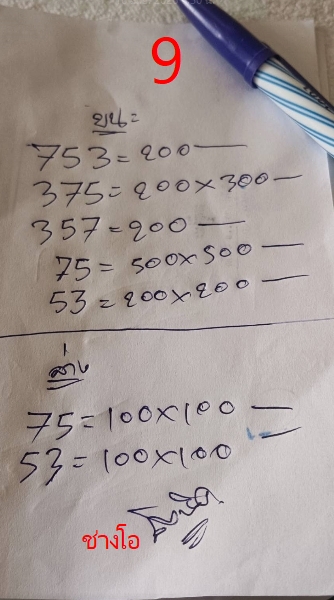 9
บน=
753=200—
375=200×300—
357=200—
75=500×500—
53=200×200—
ล่าง
75=100×100—
53=100×100—
ช่างโอ